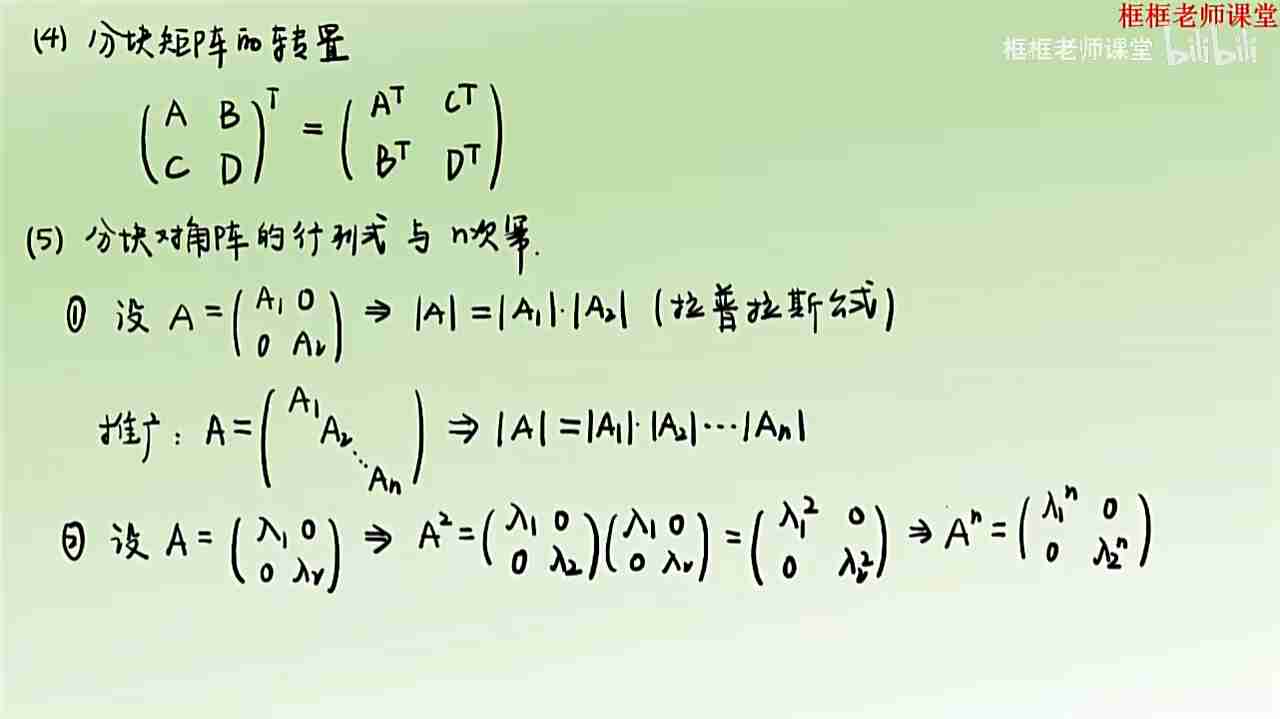 框框老师课堂
框框老师课堂 bilibili
(4) 分块矩阵的转置
(A B; C D)^T = (A^T C^T; B^T D^T)
(5) 分块对角阵的行列式与n次幂.
① 设 A = (A₁ 0; 0 A₂) ⇒ |A| = |A₁|·|A₂| (拉普拉斯公式)
推广: A = (A₁ A₂ ⋱ Aₙ) ⇒ |A| = |A₁|·|A₂|⋯|Aₙ|
② 设 A = (λ₁ 0; 0 λ₂) ⇒ A² = (λ₁ 0; 0 λ₂)(λ₁ 0; 0 λ₂) = (λ₁² 0; 0 λ₂²) ⇒ Aⁿ = (λ₁ⁿ 0; 0 λ₂ⁿ)